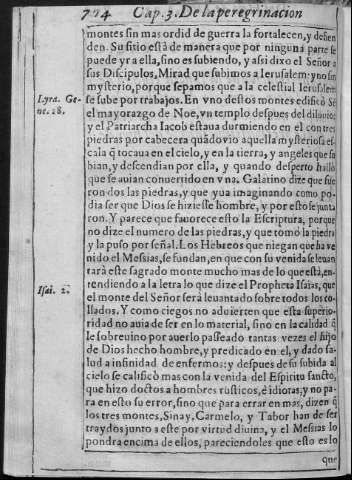 704 Cap. 3. De la peregrinacion
montes sin mas ordid de guerra la fortalecen, y defien
den. Su sitio està de manera que por ninguna parte se
puede yr a ella, sino es subiendo, y assi dixo el Señor a
sus Discipulos, Mirad que subimos a Ierusalem: y no sin
mysterio, porque sepamos que a la celestial Ierusalem
se sube por trabajos. En vno destos montes edificò Sē
el mayorazgo de Noe, vn templo despues del diluuio:
y el Patriarcha Iacob estaua durmiendo en el con tres
piedras por cabecera quādo vio aquella mysteriosa es-
cala q̃ tocaua en el cielo, y en la tierra, y angeles que su
bian, y descendian por ella, y quando desperto hallò
que se auian conuertido en vna. Galatino dize que fue
ron dos las piedras, y que yua imaginando como po-
dia ser que Dios se hiziesse hombre, y por esto se junta
ron. Y parece que fauorece esto la Escriptura, porque
no dize el numero de las piedras, y que tomò la piedra
y la puso por señal. Los Hebreos que niegan que ha ve
nido el Messias, se fundan, en que con su venida se leuan
tarà este sagrado monte mucho mas de lo que està, en-
tendiendo a la letra lo que dize el Propheta Isaias, que
el monte del Señor serà leuantado sobre todos los co-
llados. Y como ciegos no aduierten que esta superio-
ridad no auia de ser en lo material, sino en la calidad q̃
le sobreuino por auerlo passeado tantas vezes el hijo
de Dios hecho hombre, y predicado en el, y dado sa-
lud a infinidad de enfermos: y despues de su subida al
cielo se calificò mas con la venida del Espiritu sancto,
que hizo doctos a hombres rusticos, è idiotas; y no pa-
ra en esto su error, sino que para errar en mas, dizen q̃
los tres montes, Sinay, Carmelo, y Tabor han de ser
traydos junto a este por virtud diuina, y el Messias lo
pondra encima de ellos, pareciendoles que esto es lo
que
Lyra. Ge-
ne. 28.
Isai. 2.